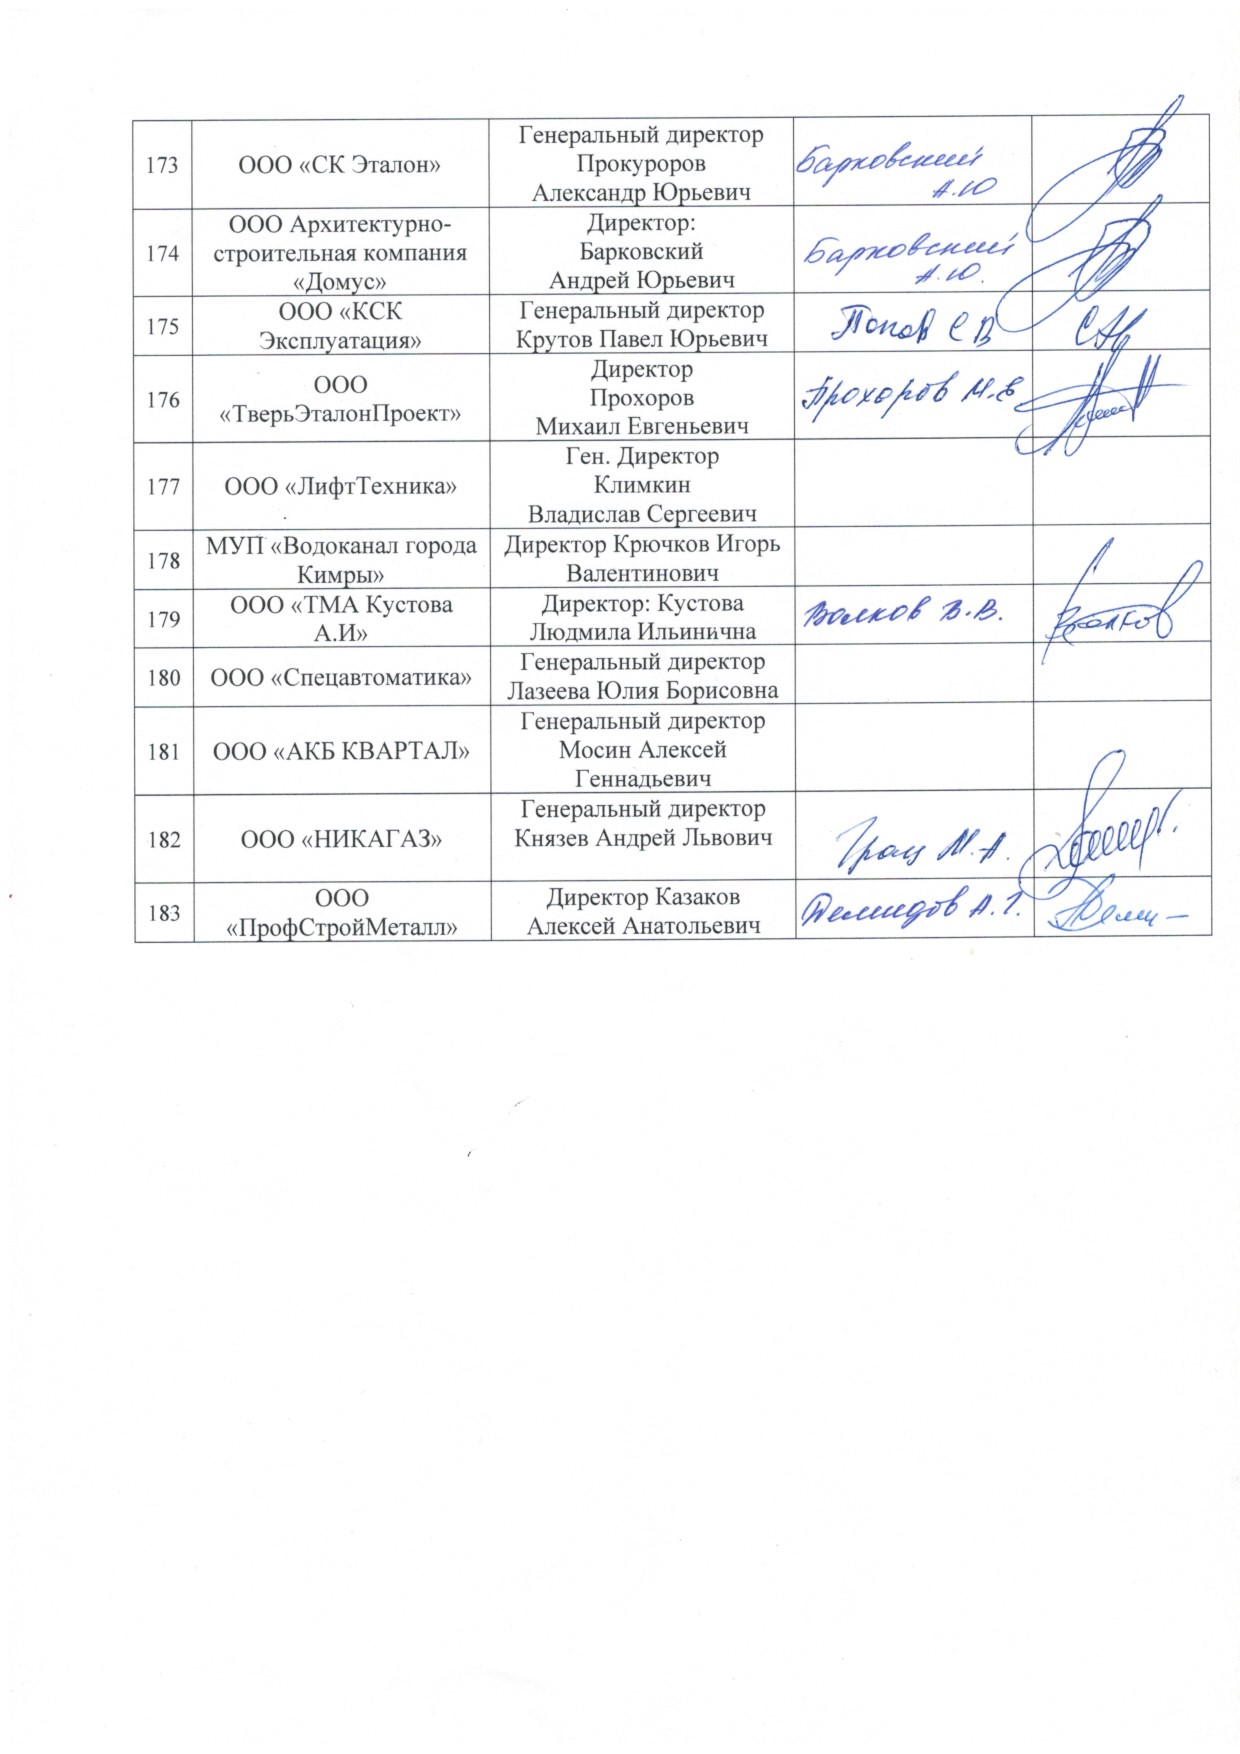 173
ООО «СК Эталон»
Генеральный директор
Прокуроров
Александр Юрьевич
Барковский
А.Ю
174
ООО Архитектурно-
строительная компания
«Домус»
Директор:
Барковский
Андрей Юрьевич
Барковский
А.Ю.
175
ООО «КСК
Эксплуатация»
Генеральный директор
Крутов Павел Юрьевич
Попов С В
176
ООО
«ТверьЭталонПроект»
Директор
Прохоров
Михаил Евгеньевич
Прохоров М.Е
177
ООО «ЛифтТехника»
Ген. Директор
Климкин
Владислав Сергеевич
178
МУП «Водоканал города
Кимры»
Директор Крючков Игорь
Валентинович
179
ООО «ТМА Кустова
А.И»
Директор: Кустова
Людмила Ильинична
Волков В.В.
180
ООО «Спецавтоматика»
Генеральный директор
Лазеева Юлия Борисовна
181
ООО «АКБ КВАРТАЛ»
Генеральный директор
Мосин Алексей
Геннадьевич
182
ООО «НИКАГАЗ»
Генеральный директор
Князев Андрей Львович
Грац М.А.
183
ООО
«ПрофСтройМеталл»
Директор Казаков
Алексей Анатольевич
Демидов А.Г.